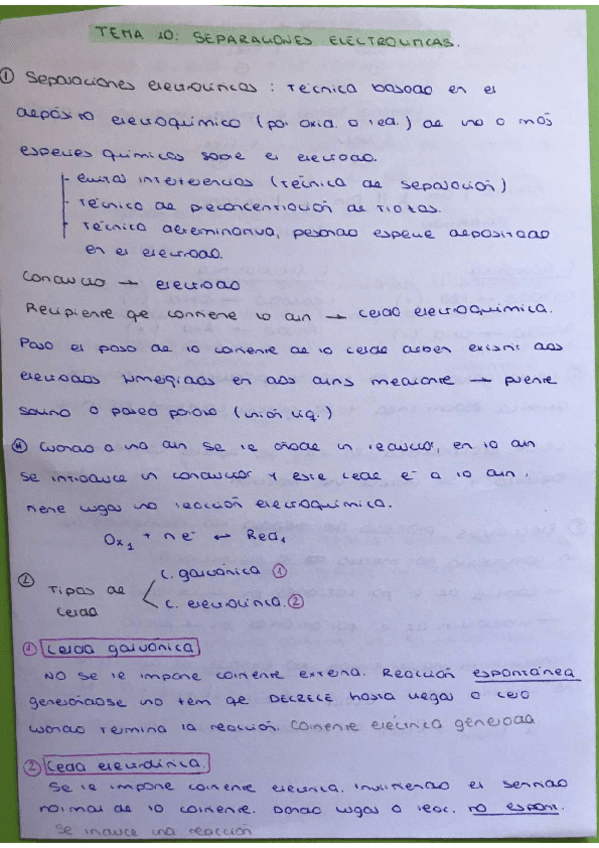 TEMA 10: SEPARACIONES ELECTROLITICAS.
① Separaciones electrolíticas : Técnica basada en el
depósito electroquímico (por oxid. o red.) de una o más
especies químicas sobre el electrodo.
- evitar interferencias (técnica de separación)
- técnica de preconcentración de trazas.
- técnica determinativa, pesando especie depositada
en el electrodo.
Conductor → electrodo
Recipiente qe contiene la dln → celda electroquímica.
Para el paso de la corriente de la celda deben existir dos
electrodos sumergidos en dos dlns mediante → puente
salino o pared porosa (unión líq.)
Cuando a una dln se le añade un reductor, en la dln
se introduce un conductor y este cede e⁻ a la dln.
tiene lugar una reacción electroquímica.
Ox₁ + n e⁻ ↔ Red₁
② Tipos de celda
C. galvánica ①
C. electrolítica. ②
① Celda galvánica
NO se le impone corriente externa. Reacción espontánea
generándose una tem qe DECRECE hasta llegar a cero
cuando termina la reacción. Corriente eléctrica generada
② Celda electrolítica.
Se le impone corriente eléctrica. invirtiendo el sentido
normal de la corriente. Dando lugar a reac. no espont.
Se induce una reacción